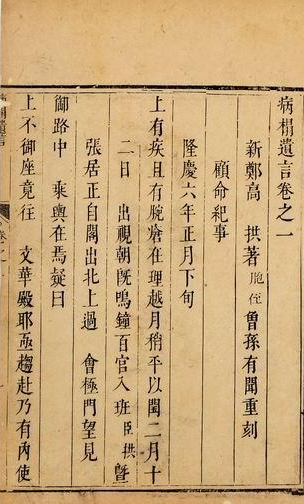 病榻遺言卷之一
新鄭高 拱著 胞侄曾孫有聞重刻
顧命紀事
隆慶六年正月下旬
上有疾且有腕瘡在理越月稍平以閏二月十
二日 出視朝旣鳴鐘百官入班臣拱曁
張居正自閣出北上過 會極門望見
御路中 乘輿在焉疑曰
上不御座竟往 文華殿耶亟趨赴乃有內使